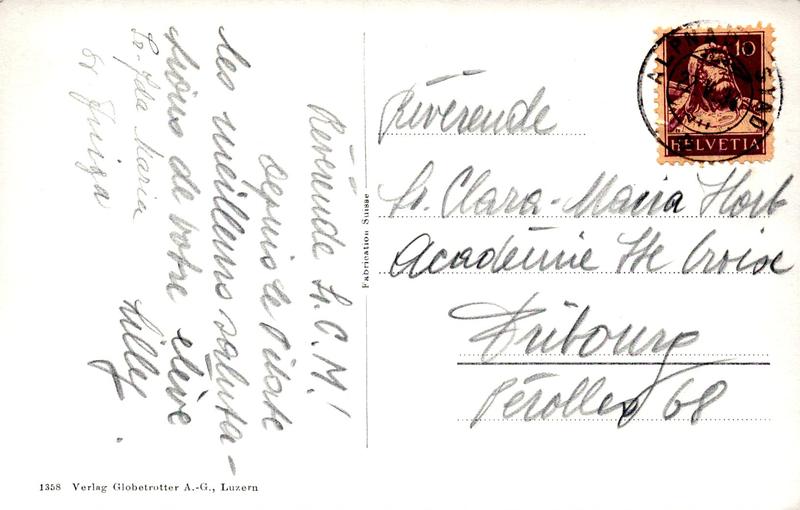 Révérende Sr. C. M!
Depuis le Pilate
les meilleures saluta-
tions de votre élève
Lilly.
Sr. Ida Maria
Fabrication Suisse
10
HELVETIA
ALPNACH
STAD
Révérende
Sr. Clara-Maria Horb
Académie Ste Croix
Fribourg
Pérolles 68
1358 Verlag Globetrotter A.-G., Luzern